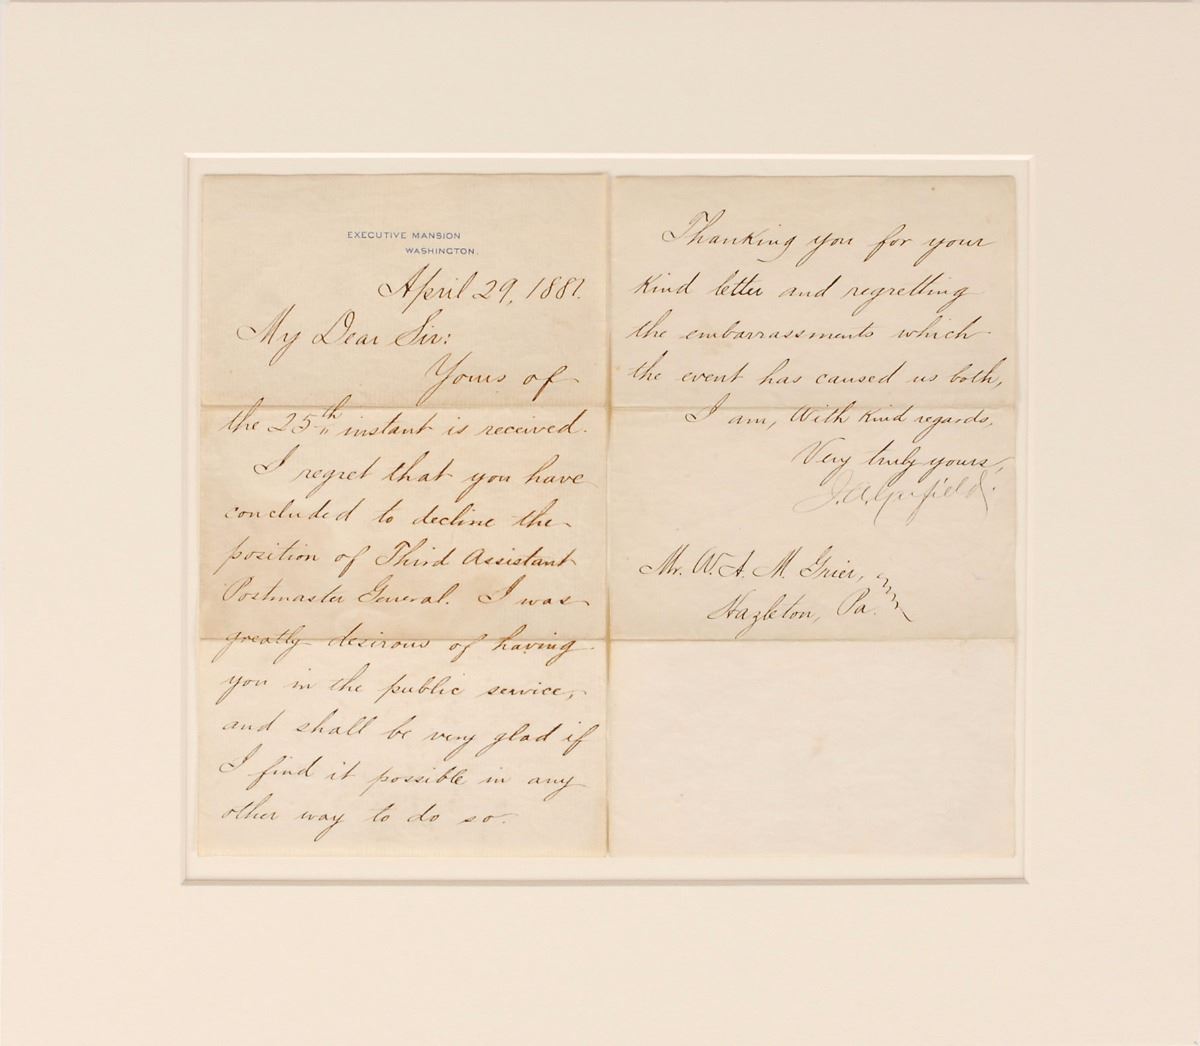 EXECUTIVE MANSION
WASHINGTON.
April 29, 1881.
My Dear Sir:
Yours of
the 25th instant is received.
I regret that you have
concluded to decline the
position of Third Assistant
Postmaster General. I was
greatly desirous of having
you in the public service,
and shall be very glad if
I find it possible in any
other way to do so.
Thanking you for your
kind letter and regretting
the embarrassments which
the event has caused us both,
I am, With kind regards,
Very truly yours,
J.A. Garfield.
Mr. W. A. M. Grier,
Hazleton, Pa.